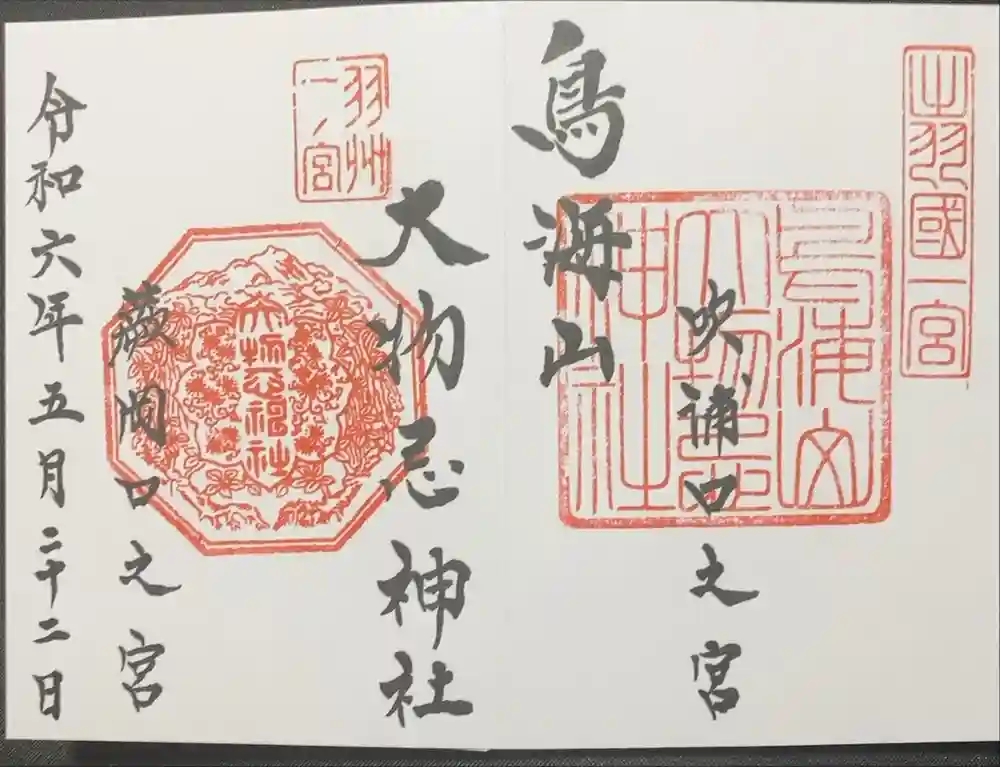 出羽國一宮
鳥海山
大物忌
神社
吹浦口之宮
鳥海山
大物忌神社
羽州
一ノ宮
大物忌神社
蕨岡口之宮
令和六年五月二十二日